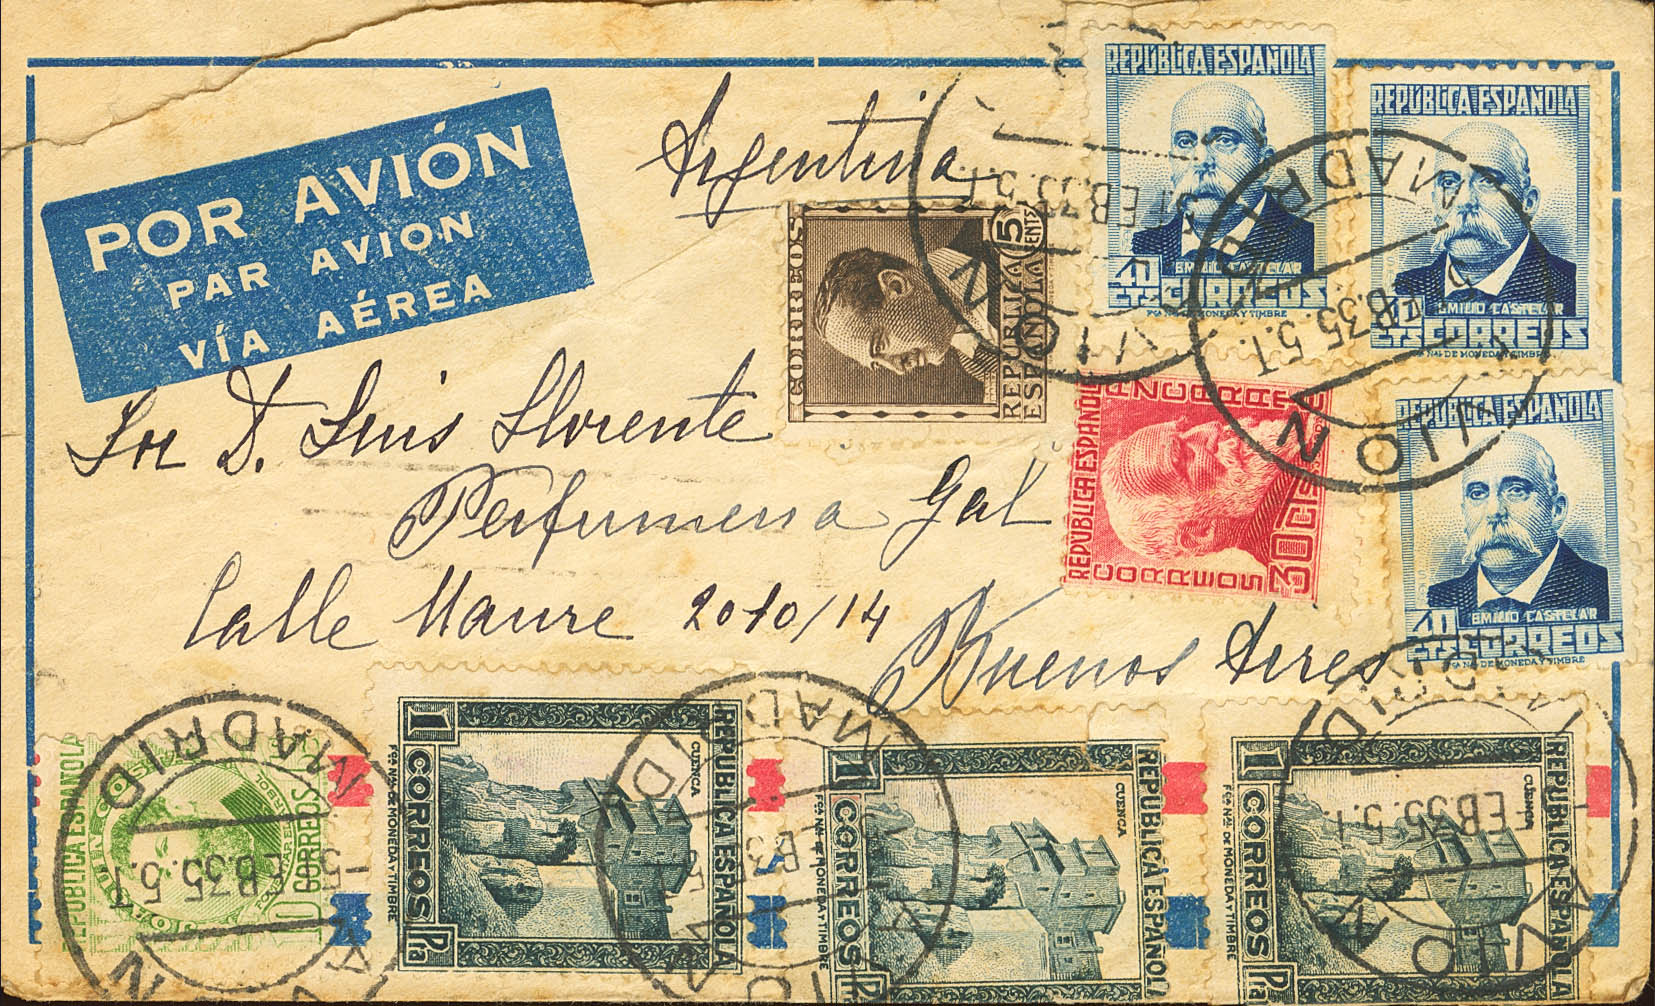 POR AVIÓN
PAR AVION
VÍA AÉREA
Argentina
Sr D. Luis Llorente
Perfumeria Gal
Calle Maure 2010/14
Buenos Aires
REPÚBLICA ESPAÑOLA
EMILIO CASTELAR
40 CTS CORREOS
FCA NAL DE MONEDA Y TIMBRE
REPÚBLICA ESPAÑOLA
EMILIO CASTELAR
CTS CORREOS
NAL DE MONEDA Y TIMBRE
REPÚBLICA ESPAÑOLA
EMILIO CASTELAR
40 CTS CORREOS
FCA NAL DE MONEDA Y TIMBRE
CORREOS
5 CENTS
REPUBLICA ESPAÑOLA
REPÚBLICA ESPAÑOLA
CORREOS
30 CTS
AZCARATE
REPÚBLICA ESPAÑOLA
10 CORREOS
REPÚBLICA ESPAÑOLA
CUENCA
1 CORREOS 1 Pta
FCA NAL DE MONEDA Y TIMBRE
REPÚBLICA ESPAÑOLA
CUENCA
1 CORREOS
FCA NAL DE MONEDA Y TIMBRE
REPÚBLICA ESPAÑOLA
CUENCA
1 CORREOS Pta
FCA NAL DE MONEDA Y TIMBRE
EB.35.5.T.
AVION
MADRID
EB.35.5.T.
AVION
MADRID
-5.FEB.35.5.T.
AVION
MADRID
AVION
MADRID
-5.FEB.35.5.T.
AVION